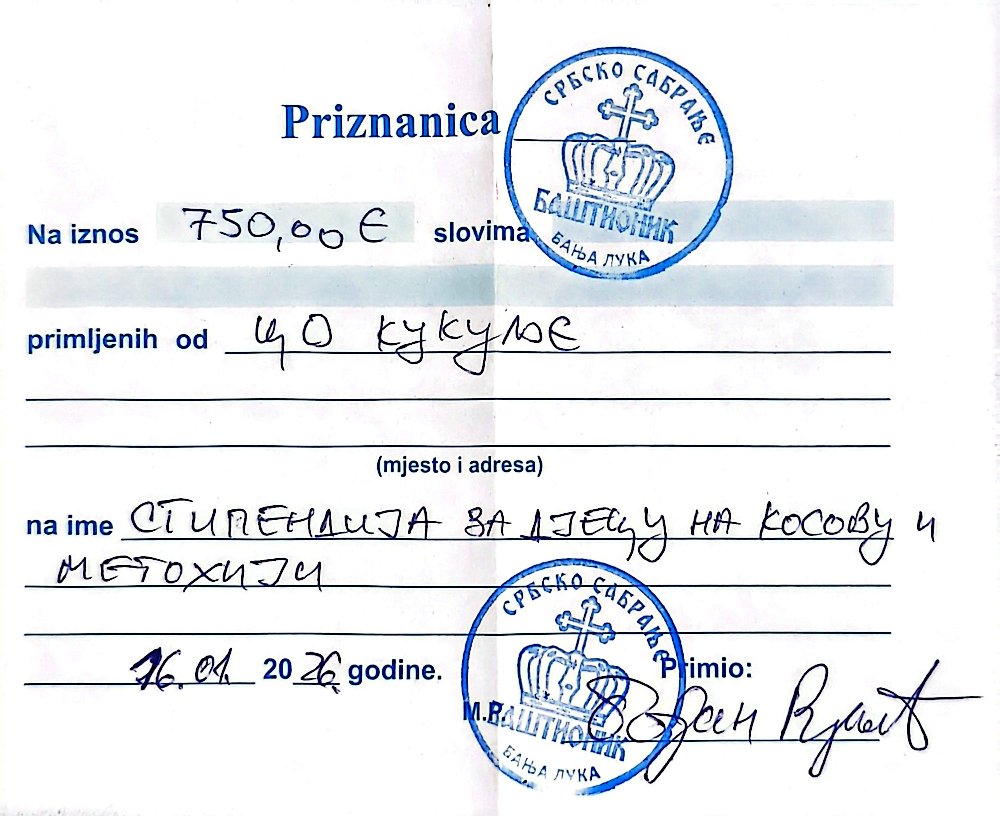 Priznanica
СРБСКО САБРАЊЕ
БАШТИОНИК
БАЊА ЛУКА
Na iznos 750,00 € slovima
primljenih od ЦО КУКУЉЕ
(mjesto i adresa)
na ime СТИПЕНДИЈА ЗА ДЈЕЦУ НА КОСОВУ И
МЕТОХИЈИ
СРБСКО САБРАЊЕ
16.01. 2026. godine.
Primio:
М.P.
БАШТИОНИК
БАЊА ЛУКА